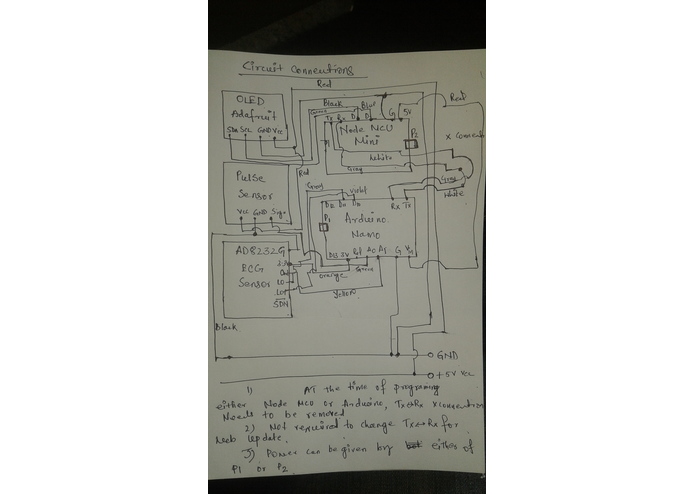 Circuit Connections
Red
OLED
Adafruit
SDA SCL GND Vcc
Black
Green
Blue
Tx Rx D D G 5V
Node MCU
Mini
P1
P2
Red
X Connection
White
Gray
Red
Gray
White
Pulse
Sensor
Vcc GND Sign
Gray
Violet
Rx Tx
P1
Arduino
Nano
D13 3V Ref A0 A1 G
AD8232 G
ECG
Sensor
3.3
Out
LO
LO+
SDN
Orange
Green
Yellow
Black
GND
+5V VCC
1) At the time of programing
either Node MCU or Arduino, Tx↔Rx X Connection
Needs to be removed
2) Not required to change Tx↔Rx for
Web Update.
3) Power can be given by either of
P1 or P2